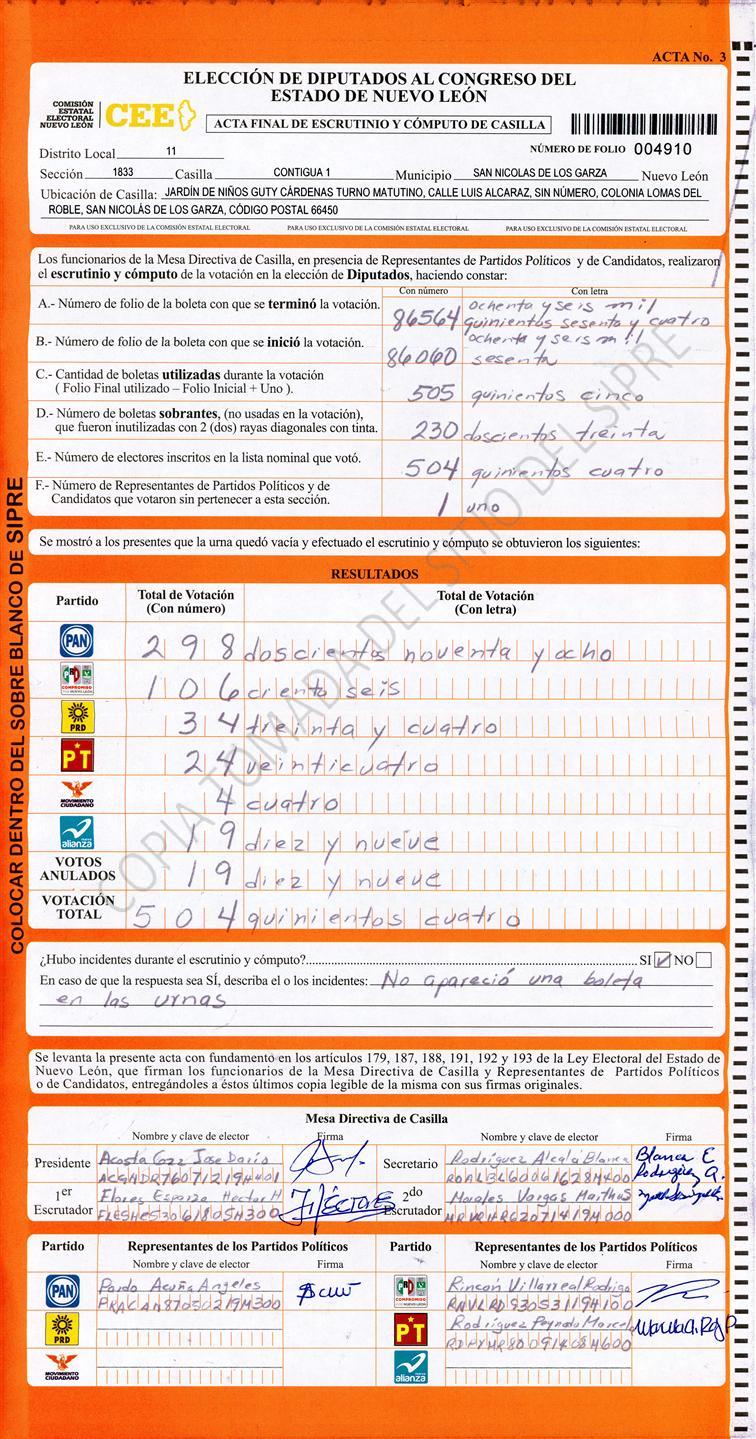 ACTA No. 3
ELECCIÓN DE DIPUTADOS AL CONGRESO DEL
ESTADO DE NUEVO LEÓN
COMISIÓN
ESTATAL
ELECTORAL
NUEVO LEÓN
CEE
ACTA FINAL DE ESCRUTINIO Y CÓMPUTO DE CASILLA
NÚMERO DE FOLIO 004910
Distrito Local 11
Sección 1833 Casilla CONTIGUA 1 Municipio SAN NICOLAS DE LOS GARZA Nuevo León
Ubicación de Casilla: JARDÍN DE NIÑOS GUTY CÁRDENAS TURNO MATUTINO, CALLE LUIS ALCARAZ, SIN NÚMERO, COLONIA LOMAS DEL
ROBLE, SAN NICOLÁS DE LOS GARZA, CÓDIGO POSTAL 66450
PARA USO EXCLUSIVO DE LA COMISIÓN ESTATAL ELECTORAL PARA USO EXCLUSIVO DE LA COMISIÓN ESTATAL ELECTORAL PARA USO EXCLUSIVO DE LA COMISIÓN ESTATAL ELECTORAL
Los funcionarios de la Mesa Directiva de Casilla, en presencia de Representantes de Partidos Políticos y de Candidatos, realizaron
el escrutinio y cómputo de la votación en la elección de Diputados, haciendo constar:
Con número Con letra
A.- Número de folio de la boleta con que se terminó la votación. 86564 ochenta y seis mil
quinientos sesenta y cuatro
B.- Número de folio de la boleta con que se inició la votación. 86060 ochenta y seis mil
sesenta
C.- Cantidad de boletas utilizadas durante la votación
( Folio Final utilizado – Folio Inicial + Uno ). 505 quinientos cinco
D.- Número de boletas sobrantes, (no usadas en la votación),
que fueron inutilizadas con 2 (dos) rayas diagonales con tinta. 230 doscientos treinta
E.- Número de electores inscritos en la lista nominal que votó. 504 quinientos cuatro
F.- Número de Representantes de Partidos Políticos y de
Candidatos que votaron sin pertenecer a esta sección. 1 uno
Se mostró a los presentes que la urna quedó vacía y efectuado el escrutinio y cómputo se obtuvieron los siguientes:
RESULTADOS
Partido Total de Votación Total de Votación
(Con número) (Con letra)
PAN 298 doscientos noventa y ocho
PRD COMPROMISO POR NUEVO LEÓN 106 ciento seis
PRD 34 treinta y cuatro
PT 24 veinticuatro
MOVIMIENTO CIUDADANO 4 cuatro
nueva alianza 19 diez y nueve
VOTOS
ANULADOS 19 diez y nueve
VOTACIÓN
TOTAL 504 quinientos cuatro
COLOCAR DENTRO DEL SOBRE BLANCO DE SIPRE
COPIA TOMADA DEL SITIO DEL SIPRE
¿Hubo incidentes durante el escrutinio y cómputo? SI ✓ NO
En caso de que la respuesta sea SÍ, describa el o los incidentes: No apareció una boleta
en las urnas
Se levanta la presente acta con fundamento en los artículos 179, 187, 188, 191, 192 y 193 de la Ley Electoral del Estado de
Nuevo León, que firman los funcionarios de la Mesa Directiva de Casilla y Representantes de Partidos Políticos
o de Candidatos, entregándoles a éstos últimos copia legible de la misma con sus firmas originales.
Mesa Directiva de Casilla
Nombre y clave de elector Firma Nombre y clave de elector Firma
Presidente Acosta Gzz Jose Dario Secretario Rodríguez Alcala Blanca Blanca E
Rodriguez A.
1er
Escrutador Flores Esparza Hector H 2do
Escrutador Morales Vargas
Partido Representantes de los Partidos Políticos Partido Representantes de los Partidos Políticos
Nombre y clave de elector Firma Nombre y clave de elector Firma
PAN Pardo Acuña Angeles COMPROMISO POR NUEVO LEÓN Rincón Villarreal Rodrigo
PRACAN87050219M300
PRD PT Rodríguez Peynado Marcela
MOVIMIENTO CIUDADANO nueva alianza